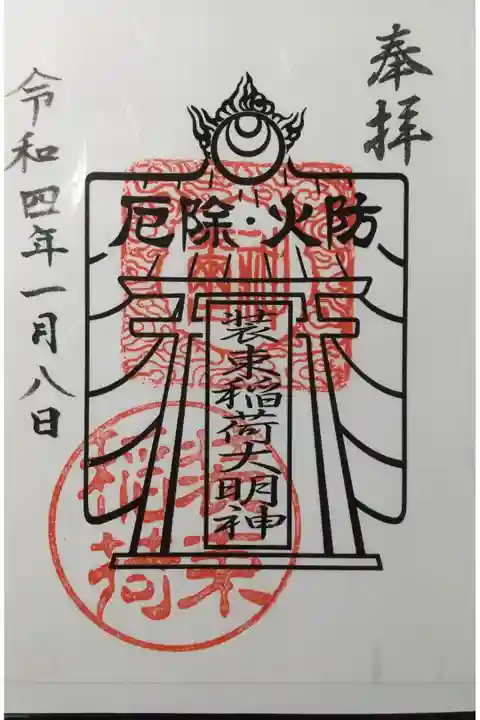 奉拝
厄除・火防
装束稲荷大明神
令和四年一月八日
装束
稲荷